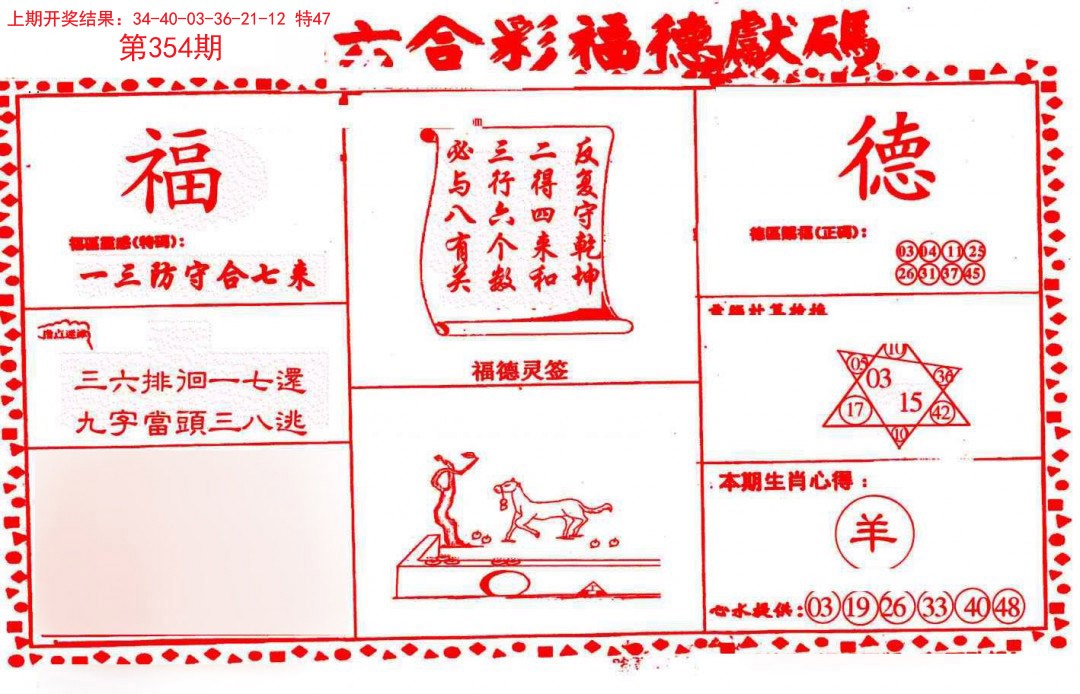 上期开奖结果：34-40-03-36-21-12 特47
第354期
六合彩福德獻碼
福
德區靈感(特碼)：
一三防守合七来
三六排徊一七還
九字當頭三八逃
反复守乾坤
二得四来和
三行六个数
必与八有关
福德灵签
德
德區靈福(正碼)：
03 04 11 25
26 31 37 45
05 10 36
03
17 15 42
10
本期生肖心得：
羊
心水提供：03 19 26 33 40 48